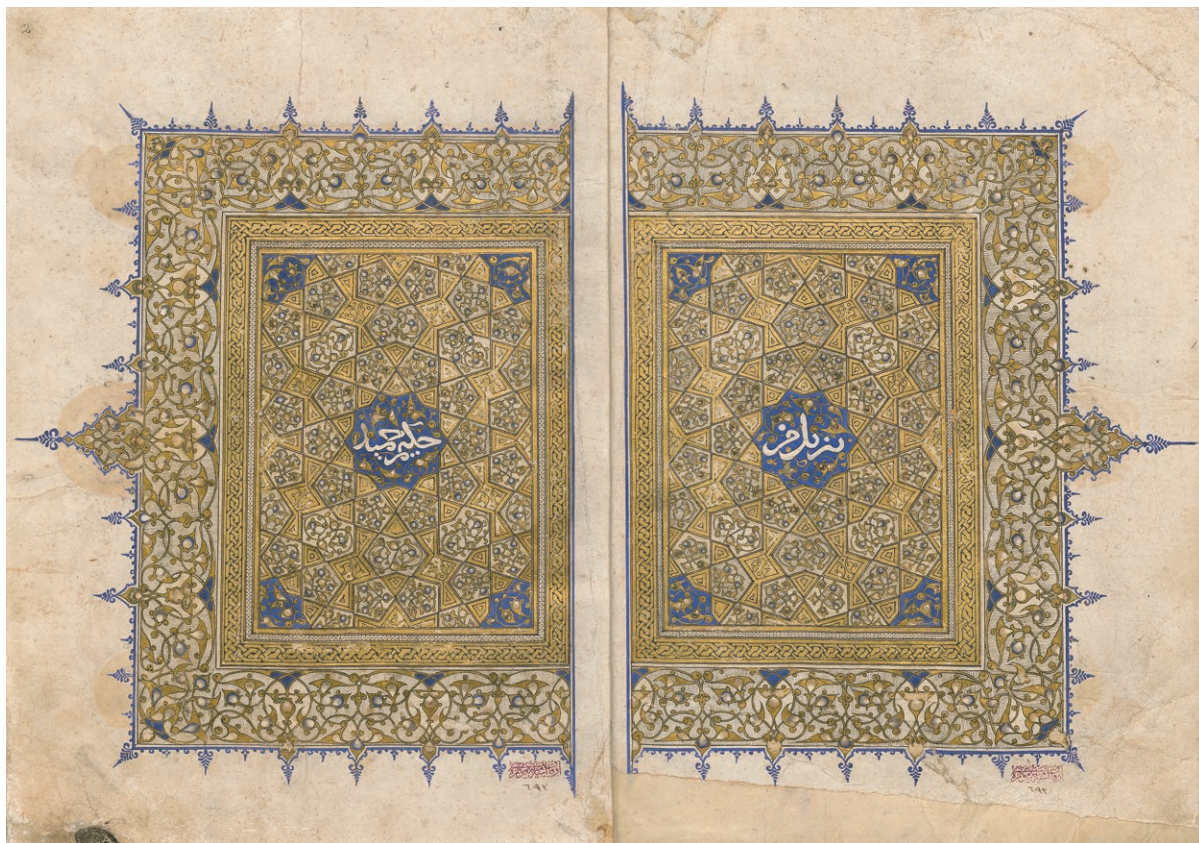 تنزيل من
حكيم حميد
٦٩٢
٦٩٢
2